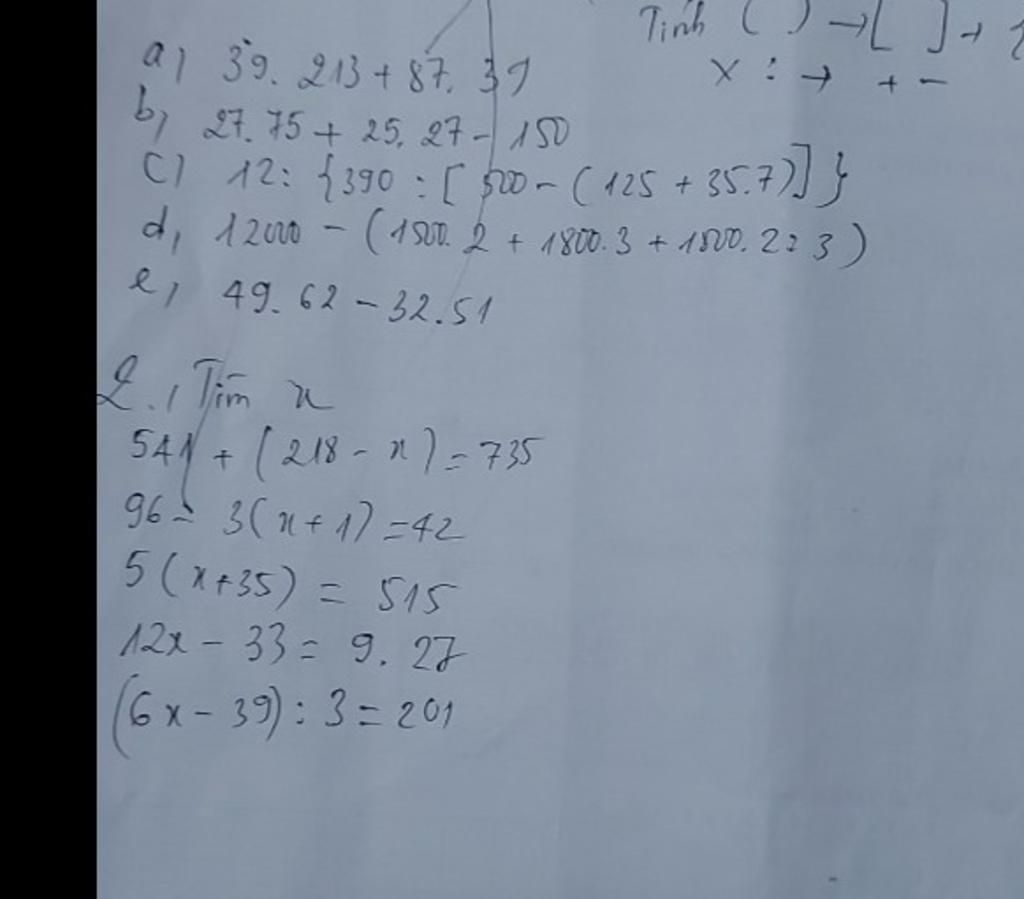 Tính ( ) → [ ] →
x : → + -
a) 39. 213 + 87. 39
b) 27.75 + 25. 27 - 150
c) 12: {390 : [500 - (125 + 35.7)]}
d, 12000 - (1500. 2 + 1800.3 + 1800. 2: 3)
e, 49. 62 - 32.51
2., Tìm x
541 + (218 - x) = 735
96 - 3(x + 1) = 42
5(x+35) = 515
12x - 33 = 9. 27
(6x - 39) : 3 = 201